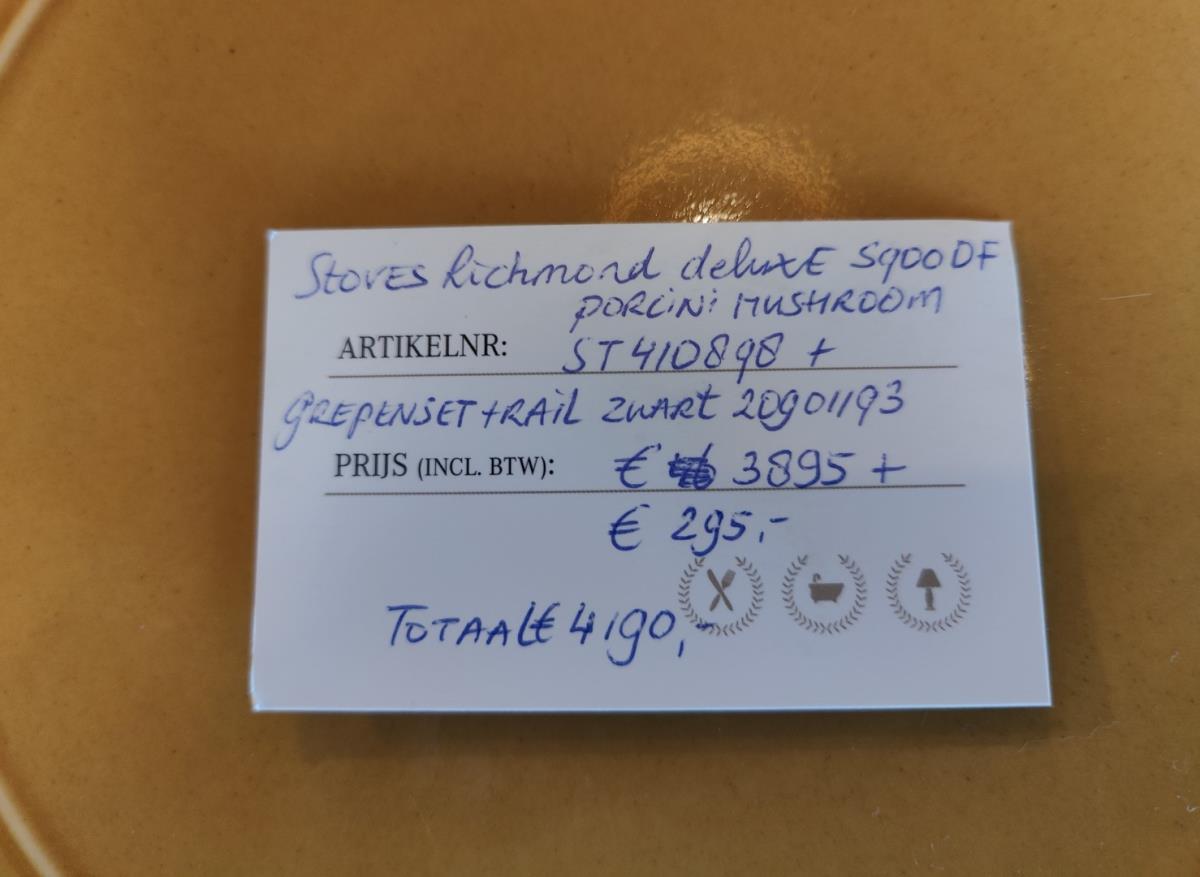 Stoves Richmond deluxE S900DF
PORCiNi MUSHROOM
ARTIKELNR: ST410898 +
GREPENSET+RAiL ZWART 20901193
PRIJS (INCL. BTW): € 3895 +
€ 295,-
TOTAAL € 4190,-